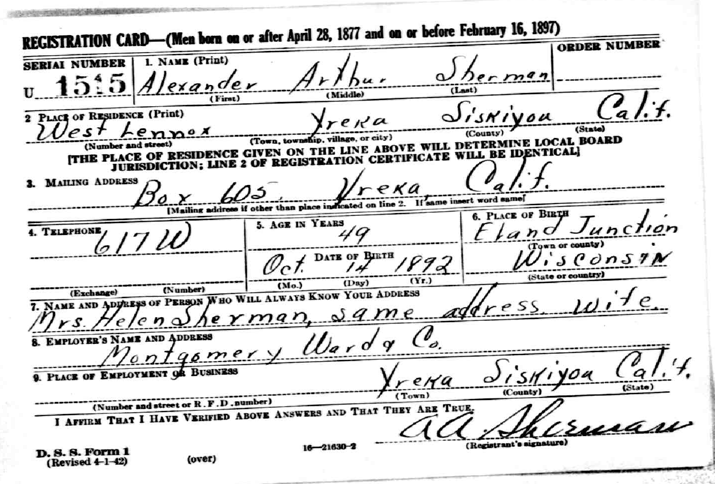 REGISTRATION CARD—(Men born on or after April 28, 1877 and on or before February 16, 1897)
SERIAL NUMBER 1. NAME (Print) ORDER NUMBER
U 1515 Alexander Arthur Sherman
(First) (Middle) (Last)
2 PLACE OF RESIDENCE (Print)
West Lennox Yreka Siskiyou Calif.
(Number and street) (Town, township, village, or city) (County) (State)
[THE PLACE OF RESIDENCE GIVEN ON THE LINE ABOVE WILL DETERMINE LOCAL BOARD
JURISDICTION; LINE 2 OF REGISTRATION CERTIFICATE WILL BE IDENTICAL]
3. MAILING ADDRESS
Box 605. Yreka, Calif.
[Mailing address if other than place indicated on line 2. If same insert word same]
4. TELEPHONE 5. AGE IN YEARS 6. PLACE OF BIRTH
617W 49 Eland Junction
DATE OF BIRTH (Town or county)
Oct. 14 1892 Wisconsin
(Exchange) (Number) (Mo.) (Day) (Yr.) (State or country)
7. NAME AND ADDRESS OF PERSON WHO WILL ALWAYS KNOW YOUR ADDRESS
Mrs. Helen Sherman, same address wife.
8. EMPLOYER'S NAME AND ADDRESS
Montgomery Ward & Co.
9. PLACE OF EMPLOYMENT OR BUSINESS
Yreka Siskiyou Calif.
(Number and street or R. F. D. number) (Town) (County) (State)
I AFFIRM THAT I HAVE VERIFIED ABOVE ANSWERS AND THAT THEY ARE TRUE.
AA. Sherman
(Registrant's signature)
D. S. S. Form 1
(Revised 4-1-42) (over) 16—21630-2